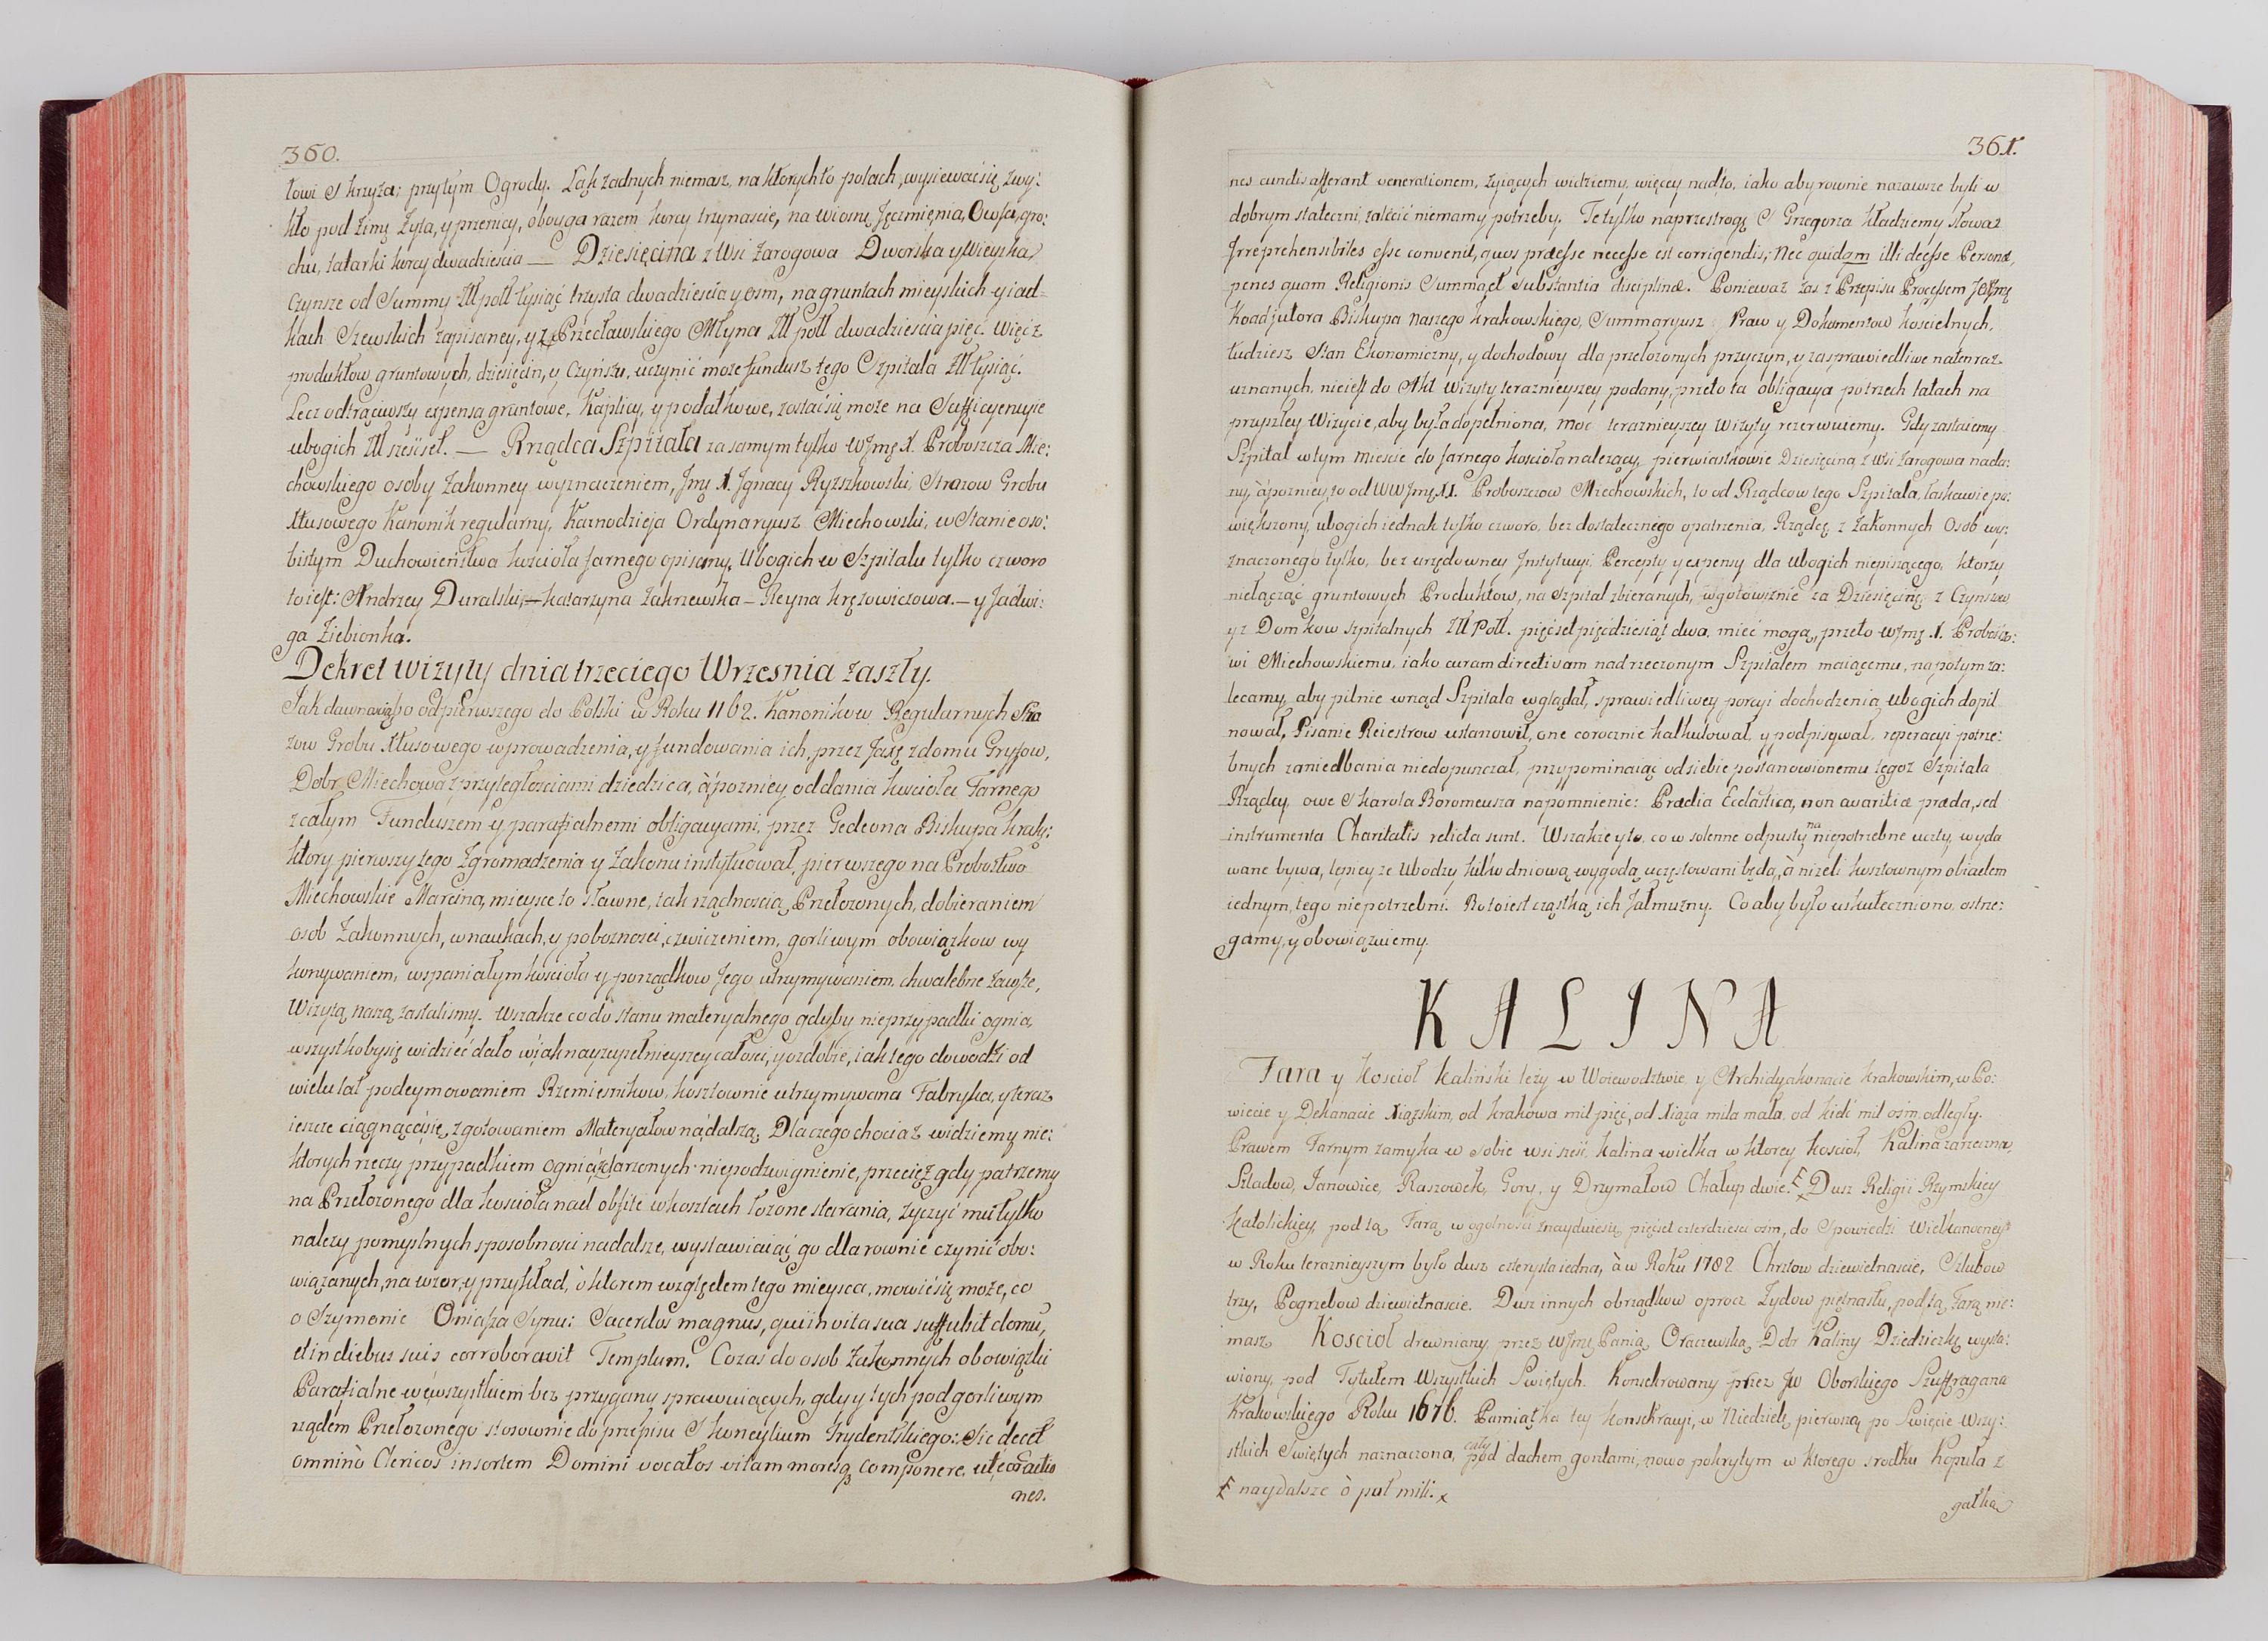 360.
łowi S krzyża; przytym Ogrody. Łąk żadnych niemasz, na ktorych to polach, wysiewać się zwy:
kło pod zimę żyta, y przenicy, oboyga razem korcy trzynascie, na wiosnę Jęczmięnia, Owsa, gro:
chu, tatarki korcy dwadziescia — Dziesięcina z Wsi Zarogowa Dworska y Wieyska,
czynsze od Summy Złł poll tysiąc trzysta dwadziescia y osm, na gruntach mieyskich y iad=
kach Szewskich zapisaney, y z Przecławskiego Młyna Złł poll dwadziescia pięc. Więc z
produktow gruntowych, dziesięcin, y Czynszu, uczynić może fundusz tego Szpitala Złł tysiąc.
Lecz odtrąciwszy expensa gruntowe, Kaplicy, y podatkowe, zostać się może na Sufficyencyie
ubogich Złł sześset. — Rządca Szpitala za samym tylko WJmę X. Proboszcza Mie:
chowskiego osoby Zakonney wyznaczeniem, Jmę X. Jgnacy Ryszkowski, Strazow Grobu
Xtusowego Kanonik regularny, Kaznodzieja Ordynaryusz Miechowski, w Stanie oso:
bistym Duchowieństwa kościoła farnego opisany. Ubogich w Szpitalu tylko czworo
to iest: Andrzey Duralski, — Katarzyna Zakrzewska — Reyna Kręzowiczowa. — y Jadwi:
ga Ziebionka.
Dekret wizyty dnia trzeciego Wrzesnia zaszły.
Jak dawna iako od pierwszego do Polski w Roku 1162. Kanonikow Regularnych Stra
zow Grobu Xtusowego wprowadzenia, y fundowania ich, przez Jaxę z domu Gryfow,
Dobr Miechowa z przyległosciami dziedzica, à pozniey oddania kościoła Farnego
z całym Funduszem y parafialnemi obligacyami, przez Gedeona Biskupa krak:
ktory pierwszy tego Zgromadzenia y Zakonu instytuował, pierwszego na Probostwo
Miechowskie Marcina, mieysce to sławne, tak rządnoscią Przełozonych, dobieraniem
osob Zakonnych, w naukach, y poboznosci, cwiczeniem, gorliwym obowiązkow wy
konywaniem, wspaniałym kościoła y porządkow Jego utrzymywaniem, chwalebne zawsze,
Wizytą naszą zastalismy. Wszakze co do stanu materyalnego gdyby nie przypadki ognia,
wszystko by się widzieć dało w iak nayzupełnieyszey całosci, y ozdobie, iak tego dowodzi od
wielu lat podeymowaniem Rzemiesnikow, kosztownie utrzymywana Fabryka, y teraz
ieszcze ciągnącasię, z gotowaniem Materyałow nadalszą. Dlaczego chociaż widziemy nie:
ktorych rzeczy przypadkiem ognia zdarzonych niepodzwignienie, przecięż gdy patrzemy
na Przełozonego dla kościoła nad obfite w kosztach łozone starania, życzyć mu tylko
nalezy pomyslnych sposobnosci nadalsze, wystawiaiąc go dla rownie czynić obo:
wiązanych, na wzor, y przykład, ò ktorem względem tego mieysca, mowić się może, co
o Szymonie Oniasza Synu: Sacerdos magnus, qui in vita sua suffubit domu,
et in diebus suis corroboravit Templum. Co zas do osob Zakonnych obowiązki
Parafialne we wszystkiem bez przygany sprawuiących, gdy y tych pod gorliwym
rządem Przełozonego stosownie do przepisu S Koncylium Trydentskiego: Sic decet
omninò Clericos in sortem Domini vocatos vitam moresq componere, ut
nes.
361.
nes cunctis afferant venerationem, żyiących widziemy, więcey nadto, iako aby rownie na zawsze byli w
dobrym stateczni, zalecić niemamy potrzeby. Te tylko na przestrogę S Grzegorza kładziemy słowa:
Jrreprehensibiles esse convenit, quos præesse necesse est corrigendis; Nec quidqm illi deesse Personæ,
penes quam Religionis Summa et substantia disciplinæ. Ponieważ zas z Przepisu Processem JOXmę
Koadjutora Biskupa Naszego krakowskiego, Summaryusz Praw y Dokumentow kościelnych,
tudziesz Stan Ekonomiczny, y dochodowy dla przełozonych przyczyn, y za sprawiedliwe na ten raz
uznanych, nieiest do Akt Wizyty terazniejszey podany, przeto ta obligacya po trzech latach na
przyszłey Wizycie, aby była dopełniona, moc terazniejszey Wizyty rezerwuiemy. Gdy zastaiemy
Szpital w tym Miescie do farnego kościoła nalezący, pierwiastkowie Dziesięciną z Wsi Zarogowa nada:
ny, à pozniey, to od WWJmę XX. Proboszczow Miechowskich, to od Rządcow tego Szpitala, łaskawie po:
większony, ubogich iednak tylko czworo, bez dostatecznego opatrzenia, Rządcę z Zakonnych Osob wy:
znaczonego tylko, bez urzędowney Jnstytucyi, Percepty y expensy dla ubogich niepiszącego, ktorzy
nie łącząc gruntowych Produktow, na Szpital zbieranych, w gotowiznie za Dziesięcinę z Czynszow
y z Domkow szpitalnych Złł Poll. pięcset pięćdziesiąt dwa, mieć mogą, przeto WJmę X. Proboszcz:
wi Miechowskiemu, iako curam directivam nad rzeczonym Szpitalem maiącemu, na potym za:
lecamy, aby pilnie w rząd Szpitala wglądał, sprawiedliwey porcyi dochodzenia ubogich dopil
nował, Pisanie Reiestrow ustanowił, one corocznie kalkulował, y podpisywał, reperacyi potrze:
bnych zaniedbania niedopuszczał, przypominaiąc od siebie postanowionemu tegoż Szpitala
Rządcy, owe S Karola Boromeusza napomnienie: Prædia Eccläscica, non avaritiæ præda, sed
instrumenta Charitatis relicta sunt. Wszakze y to, co w solenne odpusty na niepotrzebne uczty, wyda
wane bywa, lepiey ze Ubodzy kilko dniową wygodą, uczęstowani będą, à nizeli kosztownym obiadem
iednym, tego niepotrzebni. Bo to iest cząstką ich Jałmuzny. Co aby było uskuteczniono, ostrze:
gamy, y obowiązuiemy.
KALINA
Fara y kościoł kaliński lezy w Woiewodztwie y Archidyakonacie krakowskim, w Po:
wiecie y Dekanacie Xiązskim, od krakowa mil pięć, od Xiąza mila mała, od kielc mil osm odległy.
Prawem Farnym zamyka w sobie wsi sześć, kalina wielka w ktorey kościoł, kalina zarzeczna,
Sladow, Janowice, Raszowek, Gory, y Drzymałow Chałup dwie. Dusz Religii Rzymskiey
katolickiey, pod tą Farą w ogolnosci znayduiesię pięcset czterdziesci osm, do Spowiedzi Wielkanocney
w Roku terazniejszym było dusz czterysta iedna, à w Roku 1782 Chrztow dziewietnascie, Szlubow
trzy, Pogrzebow dziewietnascie. Dusz innych obrządkow oprocz Zydow piętnastu, pod tą Farą nie:
masz. Kościoł drewniany przez WJmę Panią Oraczewską Dobr Kaliny Dziedziczkę wysta:
wiony, pod Tytułem Wszystkich Swiętych. Konsekrowany przez JW Oborskiego Szuffragana
krakowskiego Roku 1676. Pamiątka tey konsekracyi, w Niedzielę pierwszą po Swięcie Wszy:
stkich Swiętych naznaczona, cały pod dachem gontami, nowo pokrytym w ktorego srodku Kopuła z
naydalsze ò puł mili.
gałką